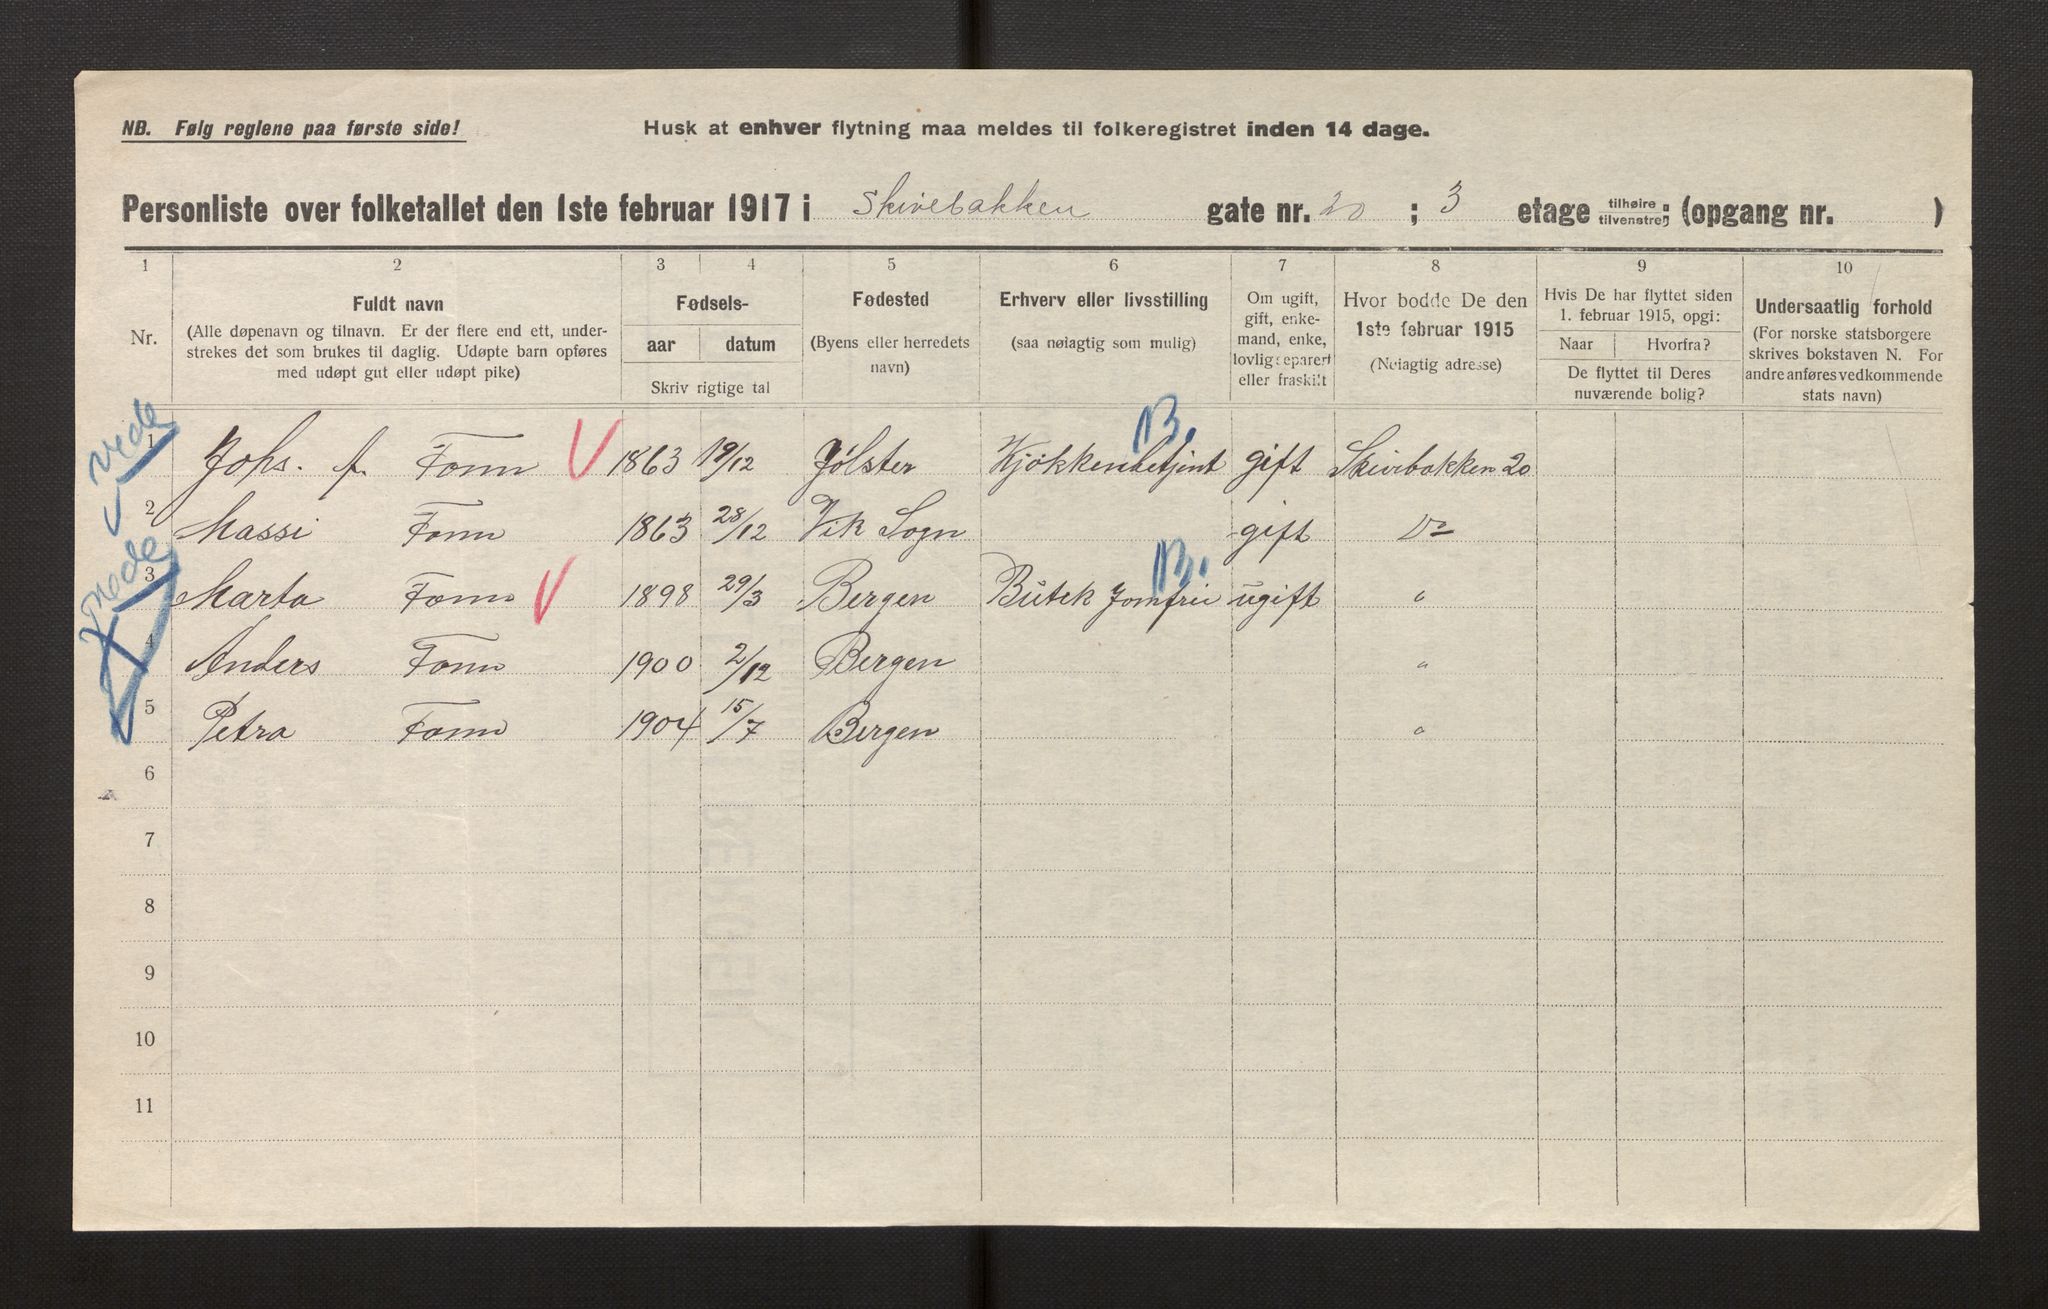 NB. Følg reglene paa første side!
Husk at enhver flytning maa meldes til folkeregistret inden 14 dage.
Personliste over folketallet den 1ste februar 1917 i Skivebakken gate nr. 20 ; 3 etage tilhøire tilvenstre ; (opgang nr. )
1 2 3 4 5 6 7 8 9 10
Nr.
Fuldt navn
(Alle døpenavn og tilnavn. Er der flere end ett, under-
strekes det som brukes til daglig. Udøpte barn opføres
med udøpt gut eller udøpt pike)
Fødsels-
aar datum
Skriv rigtige tal
Fødested
(Byens eller herredets
navn)
Erhverv eller livsstilling
(saa nøiagtig som mulig)
Om ugift,
gift, enke-
mand, enke,
lovlig separert
eller fraskilt
Hvor bodde De den
1ste februar 1915
(Nøiagtig adresse)
Hvis De har flyttet siden
1. februar 1915, opgi:
Naar Hvorfra?
De flyttet til Deres
nuværende bolig?
Undersaatlig forhold
(For norske statsborgere
skrives bokstaven N. For
andre anføres vedkommende
stats navn)
B.
1 Johs. A. Fonn V 1863 19/12 Jølster Kjøkkenbetjent gift Skivebakken 20
2 Massi Fonn 1863 28/12 Vik Sogn gift Do
B.
3 Marta Fonn V 1898 29/3 Bergen Butik Jomfru ugift "
4 Anders Fonn 1900 2/12 Bergen "
5 Petra Fonn 1904 15/7 Bergen "
6
7
8
9
10
11